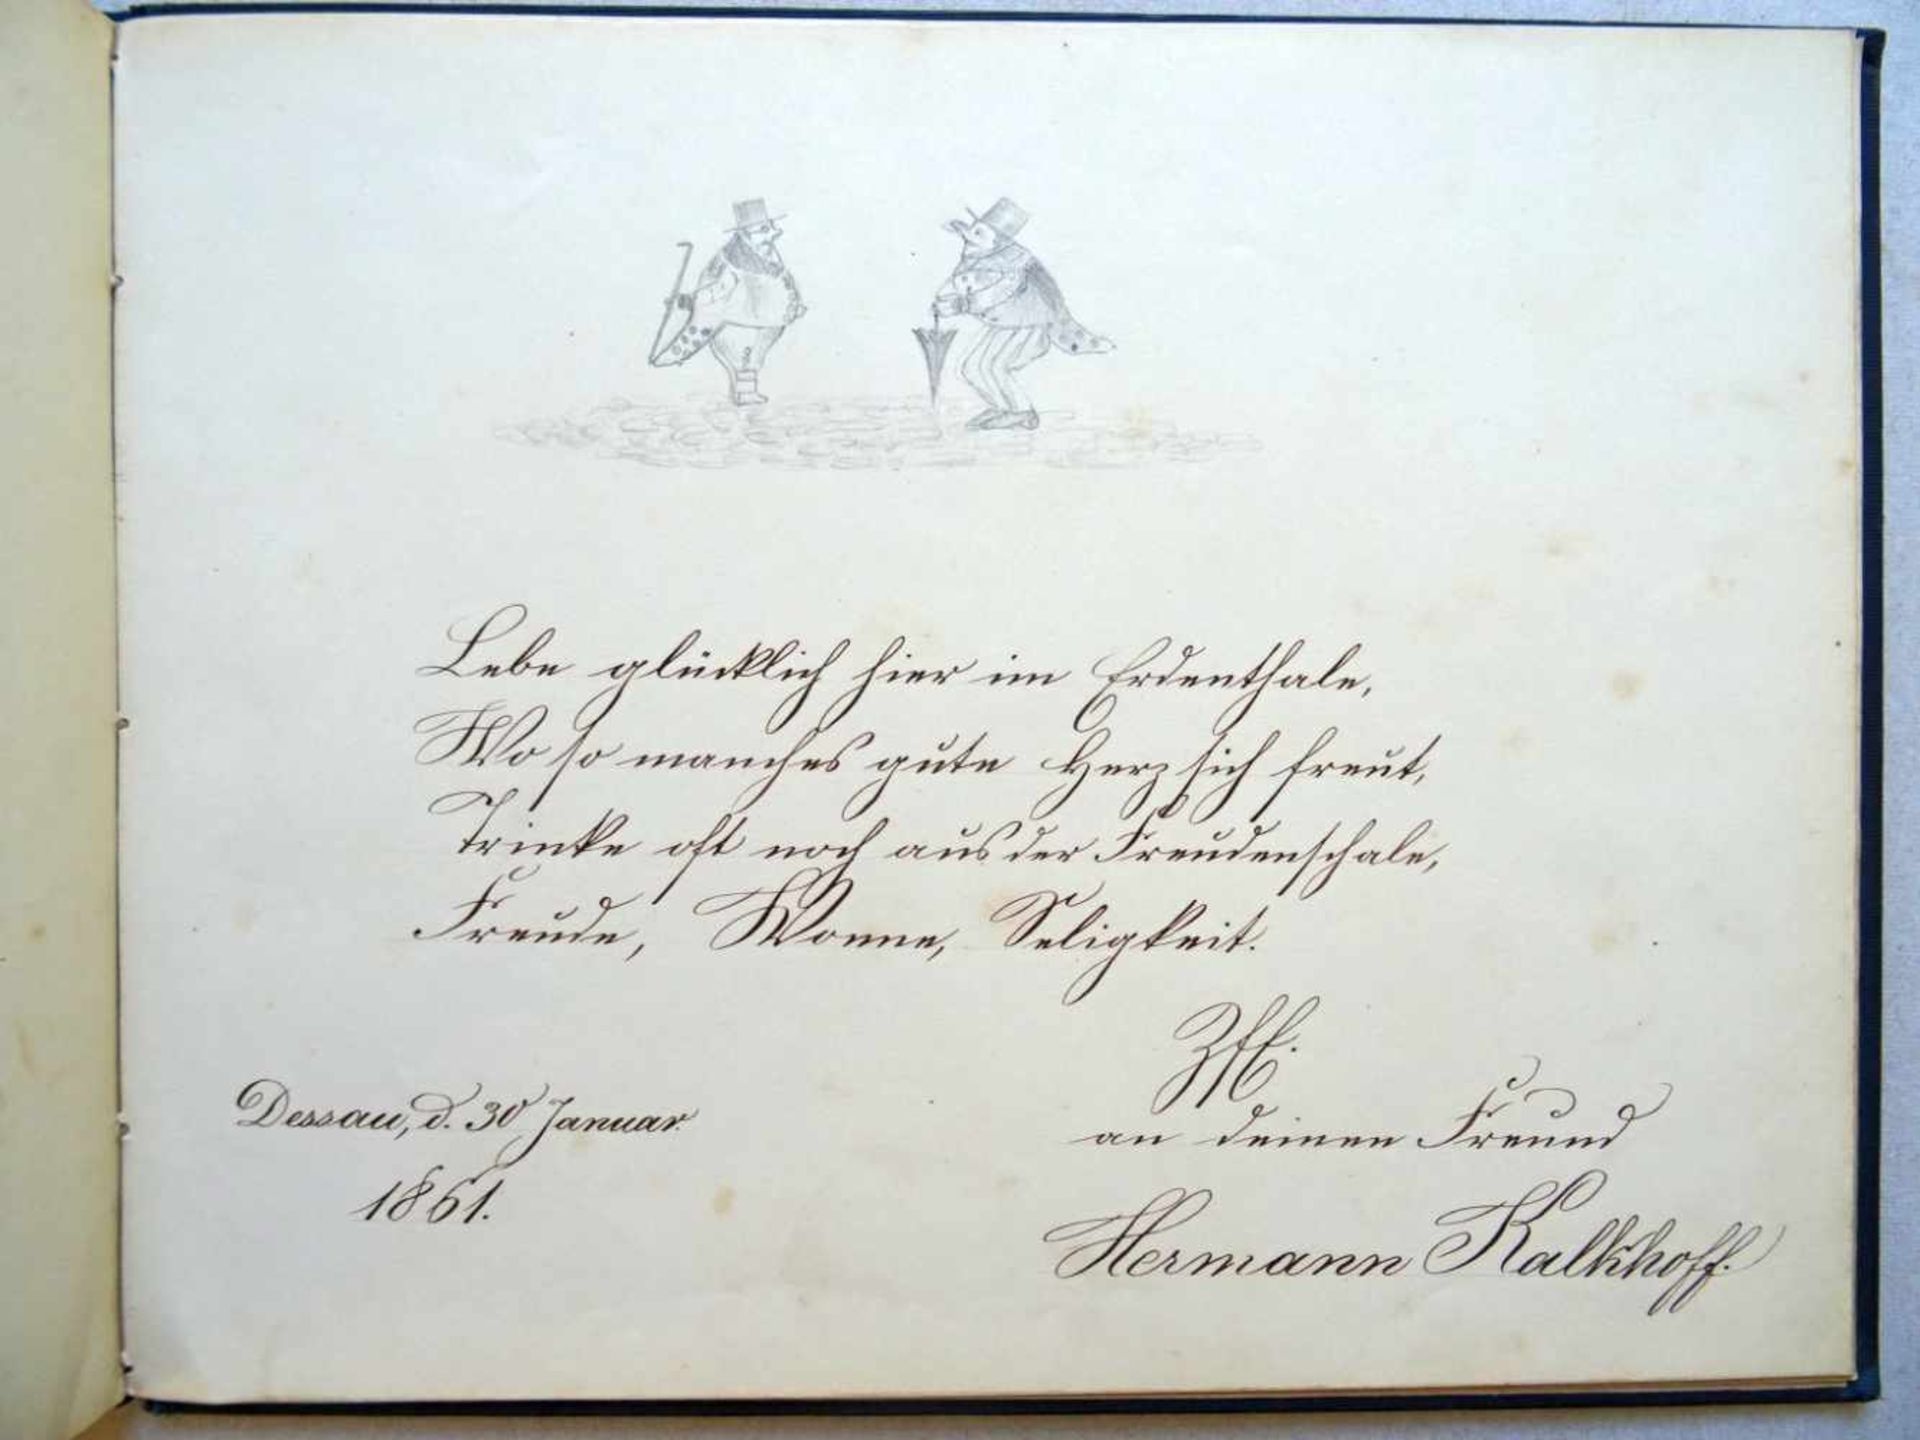 Lebe glücklich hier im Erdenthale,
Wo so manches gute Herz sich freut,
Trinke oft noch aus der Freudenschale,
Freude, Wonne, Seligkeit.
an deinen Freund
Hermann Kalkhoff.
Dessau, d. 30 Januar.
1861.